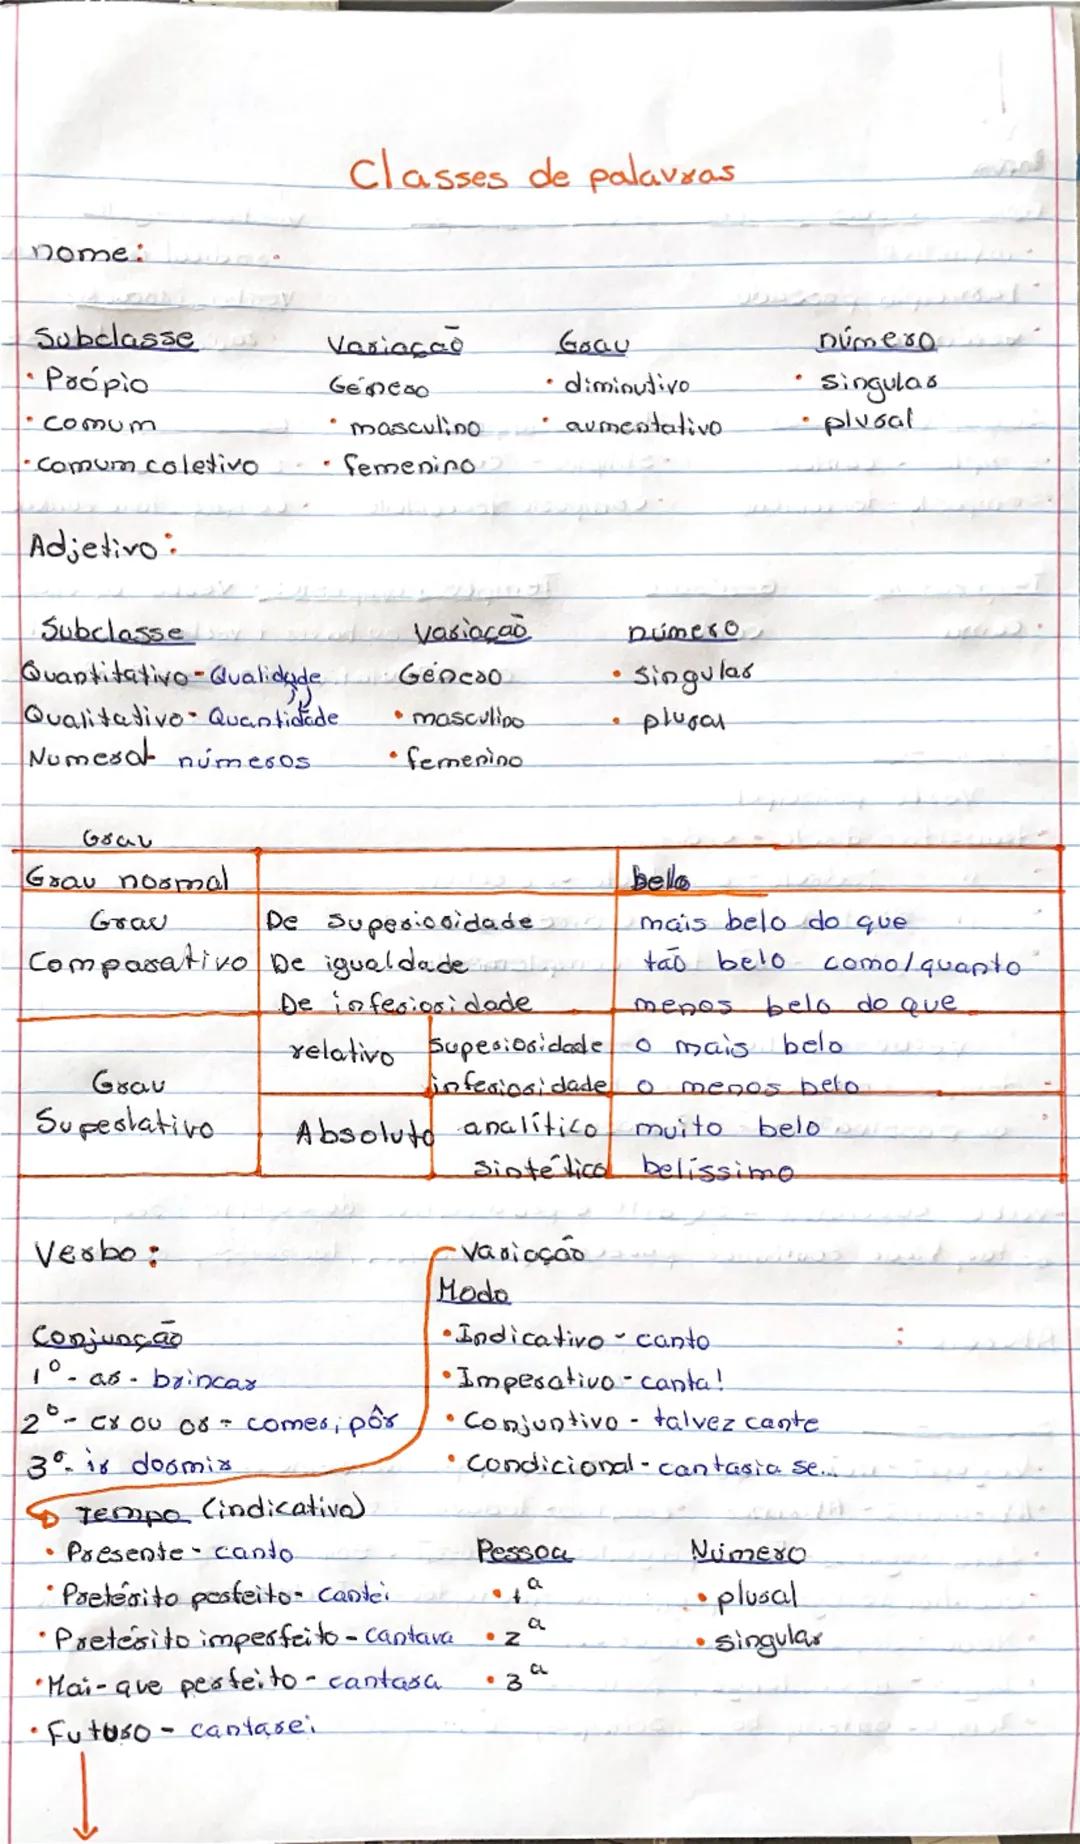 Classes de palavras
nome:
Subclasse Variação Grau número
• Própio Género • diminutivo • singular
• comum • masculino • aumentativo • plural
• comum coletivo • femenino
Adjetivo:
Subclasse Variação número
Quantitativo - Qualidade Género • singular
Qualitativo - Quantidade • masculino • plural
Numeral números • femenino
Grau
Grau normal belo
Grau De Superioridade mais belo do que
Comparativo De igualdade tão belo como/quanto
De inferioridade menos belo do que
relativo Superioridade o mais belo
Grau inferioridade o menos belo
Superlativo Absoluto analítico muito belo
sintético belíssimo
Verbo: Variação
Modo
Conjunção • Indicativo - canto
1º - ar - brincar • Imperativo - canta!
2º - er ou or - comer, pôr • Conjuntivo - talvez cante
3º - ir dormir • Condicional - cantaria se...
Tempo (indicativo)
• Presente - canto Pessoa Número
• Pretérito perfeito - cantei • 1ª • plural
• Pretérito imperfeito - cantava • 2ª • singular
• Mai-que perfeito - cantara • 3ª
• Futuro - cantarei